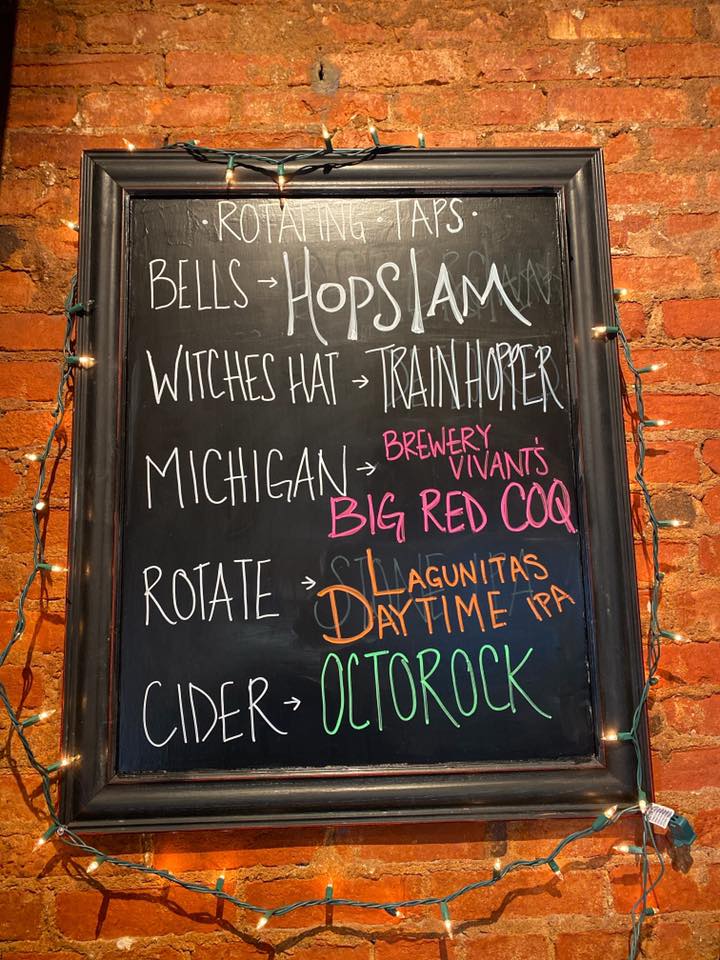 · ROTATING · TAPS ·
BELLS → HOPSLAM
WITCHES HAT → TRAINHOPPER
MICHIGAN → BREWERY
VIVANT'S
BIG RED COQ
ROTATE → LAGUNITAS
DAYTIME IPA
CIDER → OCTOROCK